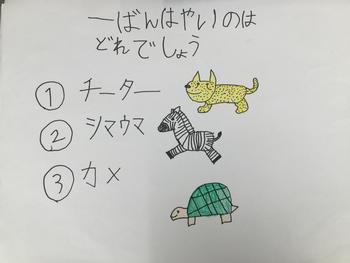 一ばんはやいのは
どれでしょう
① チーター
② シマウマ
③ カメ